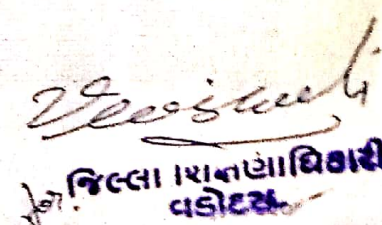 for. જિલ્લા શિક્ષણાધિકારી
વડોદરા